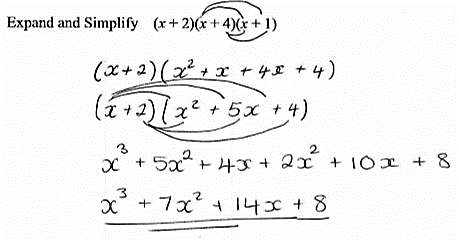 Expand and Simplify (x + 2)(x + 4)(x + 1)
(x+2)(x² + x + 4x + 4)
(x+2)(x² + 5x + 4)
x³ + 5x² + 4x + 2x² + 10x + 8
x³ + 7x² + 14x + 8